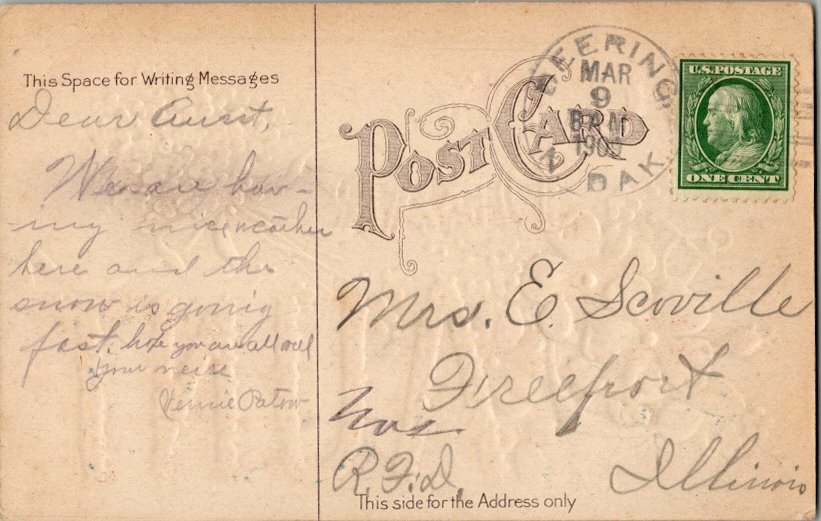 This Space for Writing Messages
Dear Aunt,
We are hav-
ing nice weather
here and the
snow is going
fast. hope you are all well
your neice
POST CARD
DEERING
MAR
9
190
N. DAK.
U.S. POSTAGE
ONE CENT
Mrs. E. Scoville
Freeport
R.F.D. Illinois
This side for the Address only